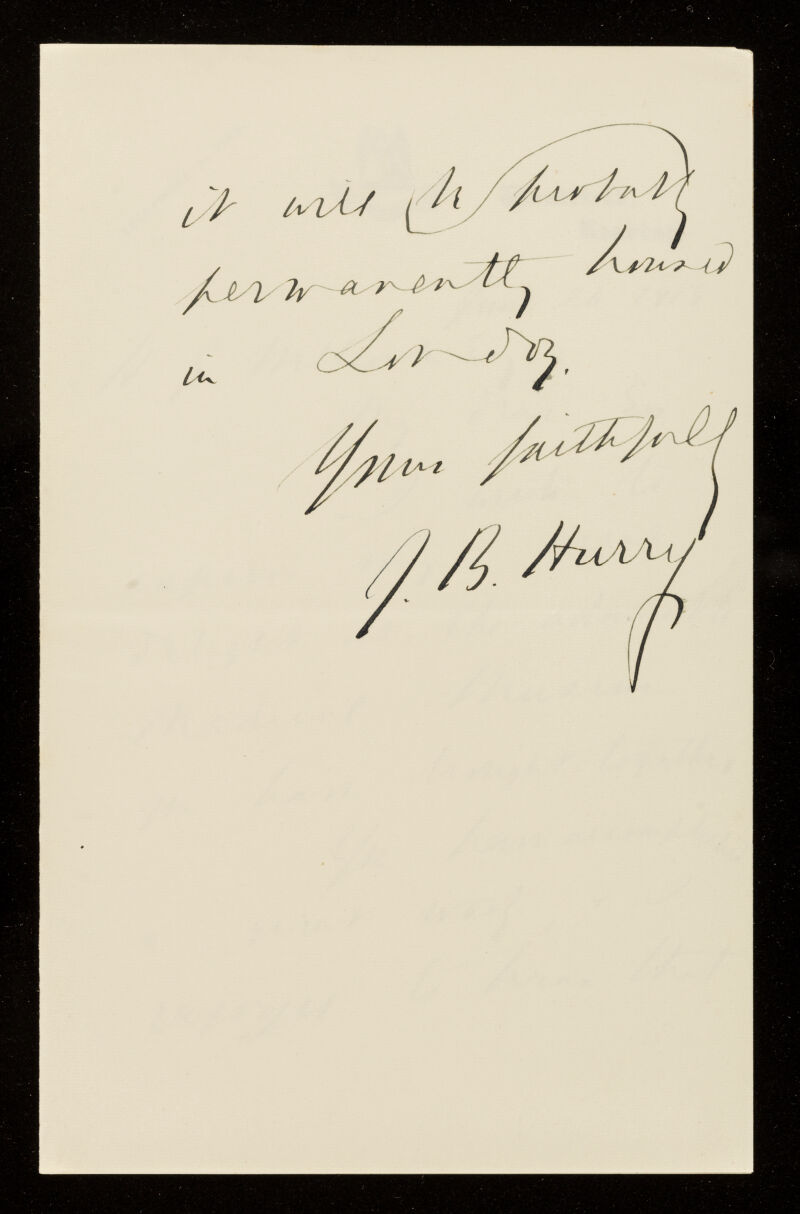 it will be probably
permanently housed
in London.
Yours faithfully
J. B. Hurry